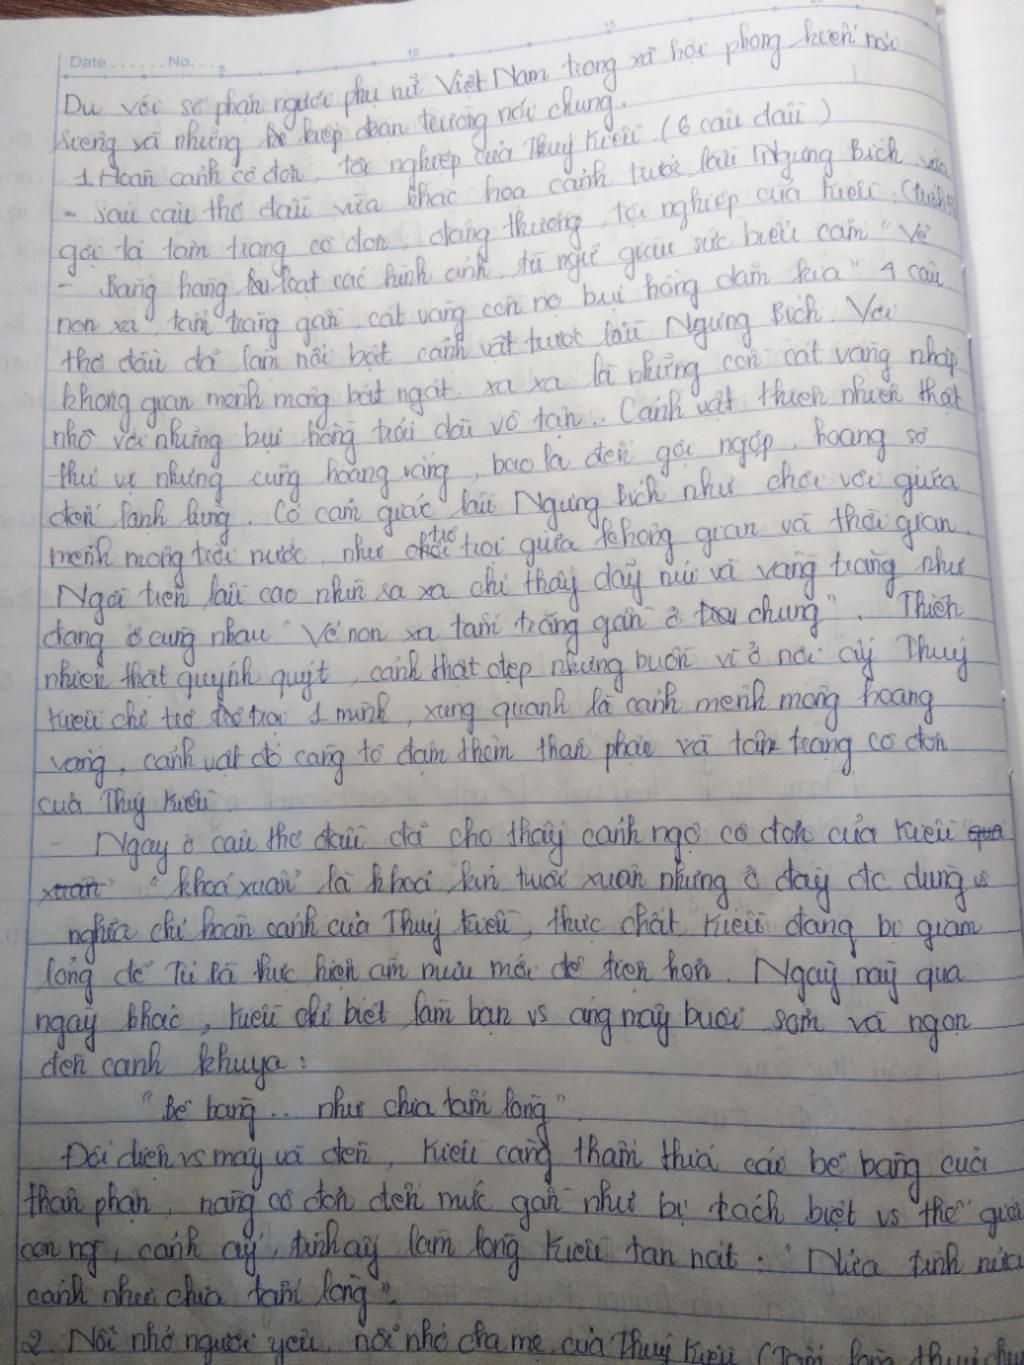 Date ...... No. ...
5 10 15
Du với số phận người phụ nữ Việt Nam trong xã hội phong kiến nói
riêng và những kiếp đoạn trường nói chung.
1. Hoàn cảnh cô đơn, tội nghiệp của Thuý Kiều. (6 câu đầu)
- Sáu câu thơ đầu vừa khắc hoạ cảnh trước lầu Ngưng Bích vừa
gợi tả tâm trạng cô đơn, đáng thương, tội nghiệp của Kiều.
- Bằng hàng loạt các hình ảnh, từ ngữ giàu sức biểu cảm "Vẻ
non xa, tấm trăng gần, cát vàng cồn nọ bụi hồng dặm kia" 4 câu
thơ đầu đã làm nổi bật cảnh vật trước lầu Ngưng Bích. Với
không gian mênh mông bát ngát, xa xa là những cồn cát vàng nhấp
nhô với những bụi hồng trải dài vô tận.. Cảnh vật thiên nhiên thật
thú vị nhưng cũng hoang vắng, bao la đến gợi ngợp, hoang sơ
đến lạnh lùng. Có cảm giác lầu Ngưng Bích như chơi vơi giữa
mênh mông trời nước, như trơ trọi giữa không gian và thời gian.
Ngồi trên lầu cao nhìn ra xa chỉ thấy dãy núi và vầng trăng như
đang ở cùng nhau "Vẻ non xa tấm trăng gần ở chung". Thiên
nhiên thật quỳnh quýt, cảnh thật đẹp nhưng buồn vì ở nơi ấy Thuý
Kiều chỉ trơ trọi 1 mình, xung quanh là cảnh mênh mông hoang
vắng, cảnh vật đó càng tô đậm thêm thân phận và tâm trạng cô đơn
của Thuý Kiều.
- Ngay ở câu thơ đầu đã cho thấy cảnh ngộ cô đơn của Kiều qua
xuân "khoá xuân" là khoá kín tuổi xuân nhưng ở đây đc dùng
nghĩa chỉ hoàn cảnh của Thuý Kiều, thực chất Kiều đang bị giam
lỏng để Tú Bà thực hiện âm mưu mới đê tiện hơn. Ngày này qua
ngày khác, Kiều chỉ biết làm bạn vs áng mây buổi sớm và ngọn
đèn canh khuya:
"Bẽ bàng .. như chia tấm lòng".
Đối diện vs mây và đèn, Kiều càng thấm thía cái bẽ bàng của
thân phận, nàng cô đơn đến mức gần như bị tách biệt vs thế giới
con ng, cảnh ấy, tình ấy làm lòng Kiều tan nát: "Nửa tình nửa
cảnh như chia tấm lòng".
2. Nỗi nhớ người yêu, nỗi nhớ cha mẹ của Thuý Kiều